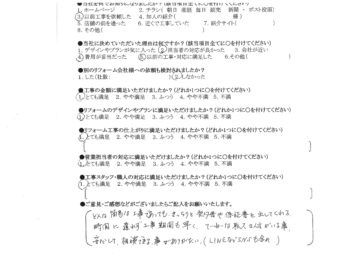 1. ホームページ 2. チラシ( 朝日 産経 毎日 読売 新聞 ・ ポスト投函)
3. 以前工事を依頼した 4. 知人の紹介( 様)
5. 店舗の前を通った 6. 近くで工事していた 7. 紹介サイト(
8. その他(
●当社に決めていただいた理由は何ですか?(該当項目全てに○を付けてください)
1. デザインやプランが気に入った 2. 担当者の対応が良かった 3. 会社が近い
4. 費用が妥当だった 5. 以前の工事・対応に満足 6. その他( )
●別のリフォーム会社様への依頼も検討されましたか?
1. した(社数: ) 2. しなかった
●工事の金額に満足いただけましたか?(どれか1つに○を付けてください)
1. とても満足 2. やや満足 3. ふつう 4. やや不満 5. 不満
●リフォームのデザインやプランに満足いただけましたか?(どれか1つに○を付けてください)
1. とても満足 2. やや満足 3. ふつう 4. やや不満 5. 不満
●リフォーム工事の仕上がりに満足いただけましたか?(どれか1つに○を付けてください)
1. とても満足 2. やや満足 3. ふつう 4. やや不満 5. 不満
●営業担当者の対応に満足いただけましたか?(どれか1つに○を付けてください)
1. とても満足 2. やや満足 3. ふつう 4. やや不満 5. 不満
●工事スタッフ・職人の対応に満足いただけましたか?(どれか1つに○を付けてください)
1. とても満足 2. やや満足 3. ふつう 4. やや不満 5. 不満
●ご意見・ご感想などがございましたらご記入をお願いいたします。
どんな 簡易な 工事 きっちりと 見積書や 保証書を 出してくれる
時間に 工事期間も 早く、
安心して 相談できる 事が ありがたい。(LINE なども含め)